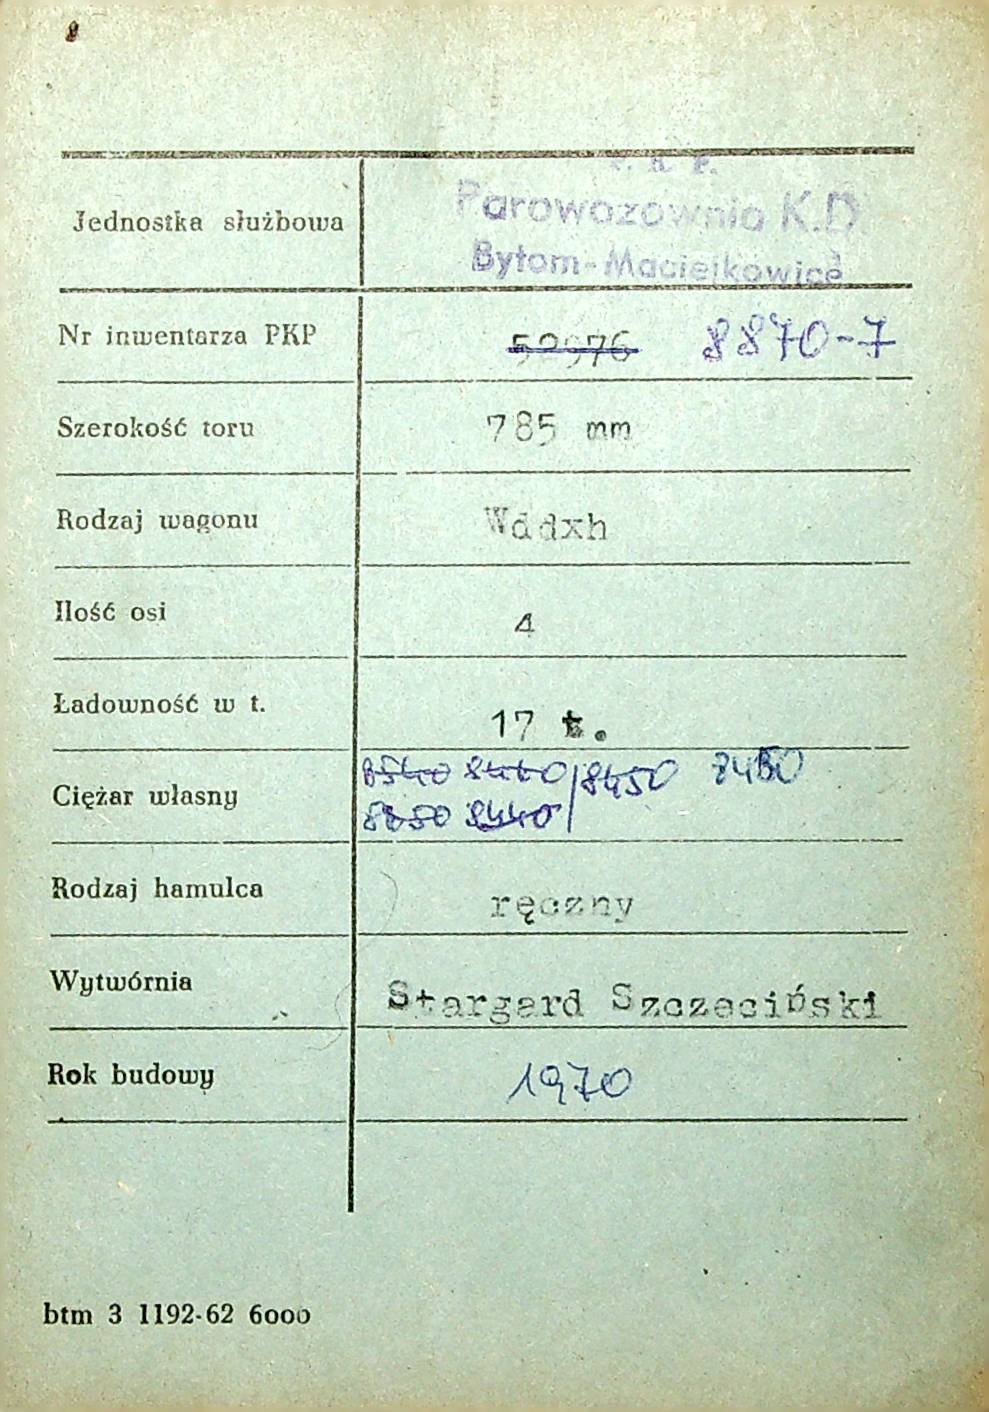 P. K. P.
Jednostka służbowa Parowozownia K.D.
Bytom-Maciejkowice
Nr inwentarza PKP 52976 8870-7
Szerokość toru 785 mm
Rodzaj wagonu Wddxh
Ilość osi 4
Ładowność w t. 17 t.
Ciężar własny 8540 8440 8450 8450
8440
Rodzaj hamulca ręczny
Wytwórnia Stargard Szczeciński
Rok budowy 1970
btm 3 1192-62 6000